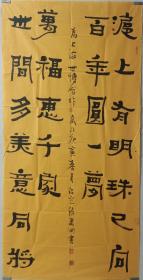 滬上有明珠已向
百年圓一夢
世間多美意同將
萬福惠千家
為上海世博會作 庚寅春月 書